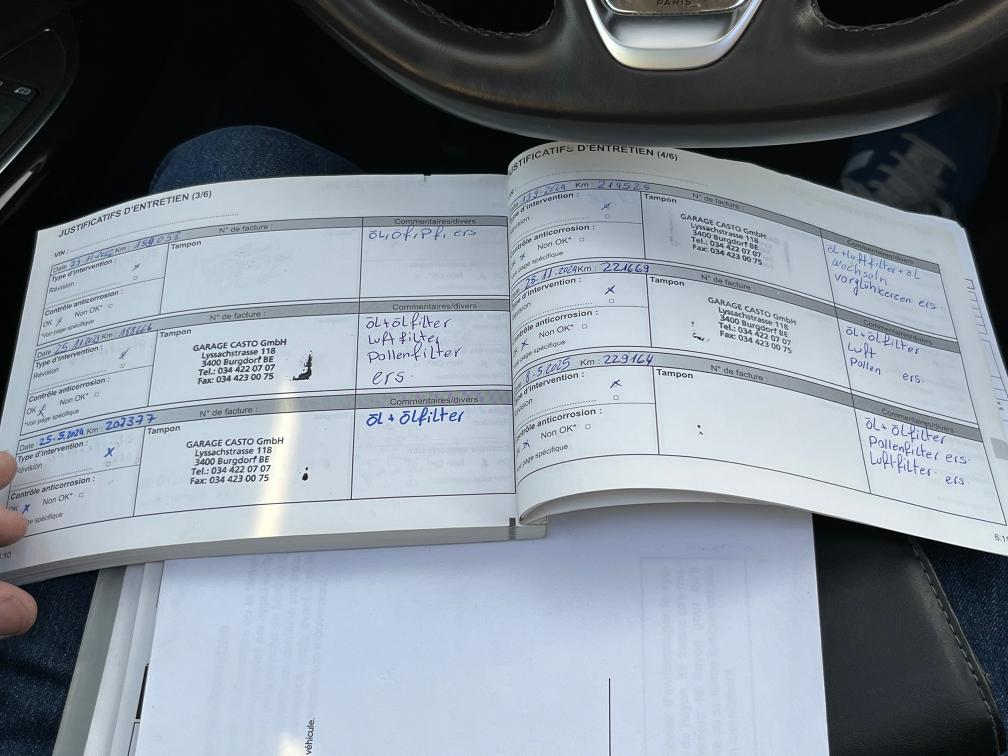 PARIS
JUSTIFICATIFS D'ENTRETIEN (3/6)
VIN :
Date 23.11.2022 Km : 159098
N° de facture :
Commentaires/divers
Type d'intervention :
Révision
Tampon
öl, öf, Pf, ers
Contrôle anticorrosion :
OK
Non OK*
*Voir page spécifique
Date 25.11.2023 Km : 188666
N° de facture :
Commentaires/divers
Type d'intervention :
Révision
Tampon
GARAGE CASTO GmbH
Lyssachstrasse 118
3400 Burgdorf BE
Tel.: 034 422 07 07
Fax: 034 423 00 75
öl + ölfilter
Luftfilter
Pollenfilter
ers.
Contrôle anticorrosion :
OK
Non OK*
*Voir page spécifique
Date 25.5.2024 Km : 202377
N° de facture :
Commentaires/divers
Type d'intervention :
Révision
Tampon
GARAGE CASTO GmbH
Lyssachstrasse 118
3400 Burgdorf BE
Tel.: 034 422 07 07
Fax: 034 423 00 75
öl + ölfilter
Contrôle anticorrosion :
OK
Non OK*
page spécifique
JUSTIFICATIFS D'ENTRETIEN (4/6)
Date 13.9.2024 Km : 214525
N° de facture :
Commentaires/divers
Type d'intervention :
GARAGE CASTO GmbH
Lyssachstrasse 118
3400 Burgdorf BE
Tel.: 034 422 07 07
Fax: 034 423 00 75
öl + luftfilter + öl
Wechseln
Vorglühkerzen ers.
Contrôle anticorrosion :
Non OK*
page spécifique
28.11.2024 Km : 221669
N° de facture :
Commentaires/divers
Type d'intervention :
Tampon
GARAGE CASTO GmbH
Lyssachstrasse 118
3400 Burgdorf BE
Tel.: 034 422 07 07
Fax: 034 423 00 75
öl + ölfilter
Luft
Pollen ers.
Contrôle anticorrosion :
Non OK*
page spécifique
8.5.2025 Km : 229164
N° de facture :
Commentaires/divers
Type d'intervention :
Tampon
öl + ölfilter
Pollenfilter ers.
Luftfilter ers.
Contrôle anticorrosion :
Non OK*
page spécifique
véhicule.